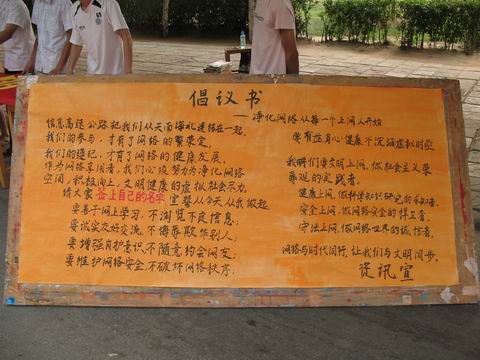 倡议书
——净化网络从每一个上网人开始
信息高速公路把我们从天南海北连结在一起,
我们的参与,才有了网络的繁荣,
我们的遵纪,才有了网络的健康发展。
作为网络享用者,我们必须努力为净化网络
空间,积极向上,文明健康的虚拟社会尽力,
请大家签上自己的名字宣誓从今天从我做起
要善于网上学习,不浏览不良信息;
要诚实友好交流,不侮辱欺诈别人;
要增强自护意识,不随意约会网友;
要维护网络安全,不破坏网络秩序;
要有益身心健康,不沉溺虚拟时空
我们要文明上网,做社会主义荣
辱观的实践者。
健康上网,做科学知识研究的求知者,
安全上网,做网络安全的捍卫者,
守法上网,做网络世界的诚信者,
网络与时代同行,让我们与文明同步。
资讯宣